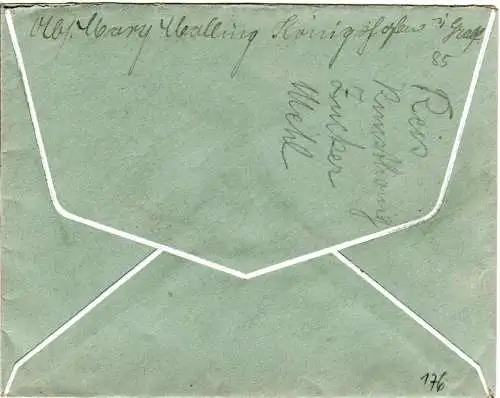 Abs. Mary Malling Königshofen i/ Grabf
85
Reis
Kunsthonig
Zucker
Mehl
176